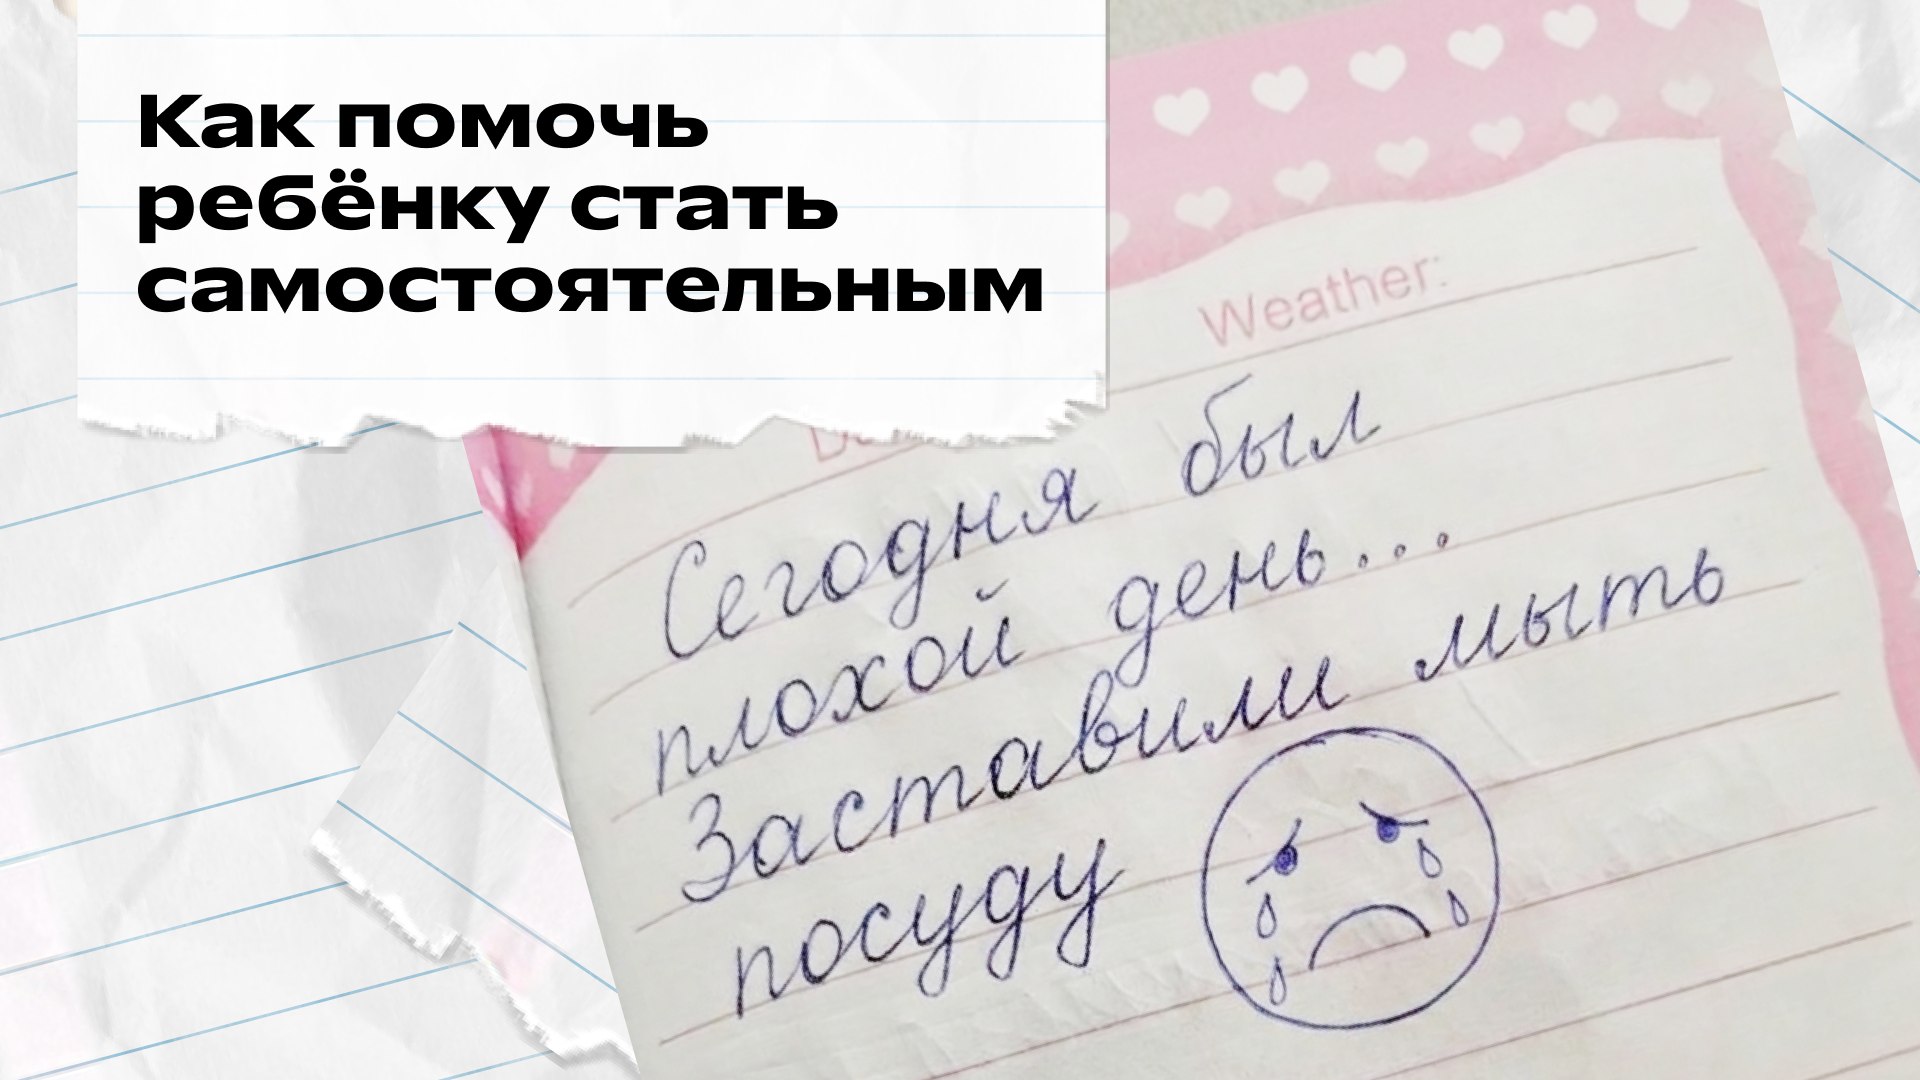 Как помочь
ребёнку стать
самостоятельным
Weather:
Сегодня был
плохой день...
Заставили мыть
посуду